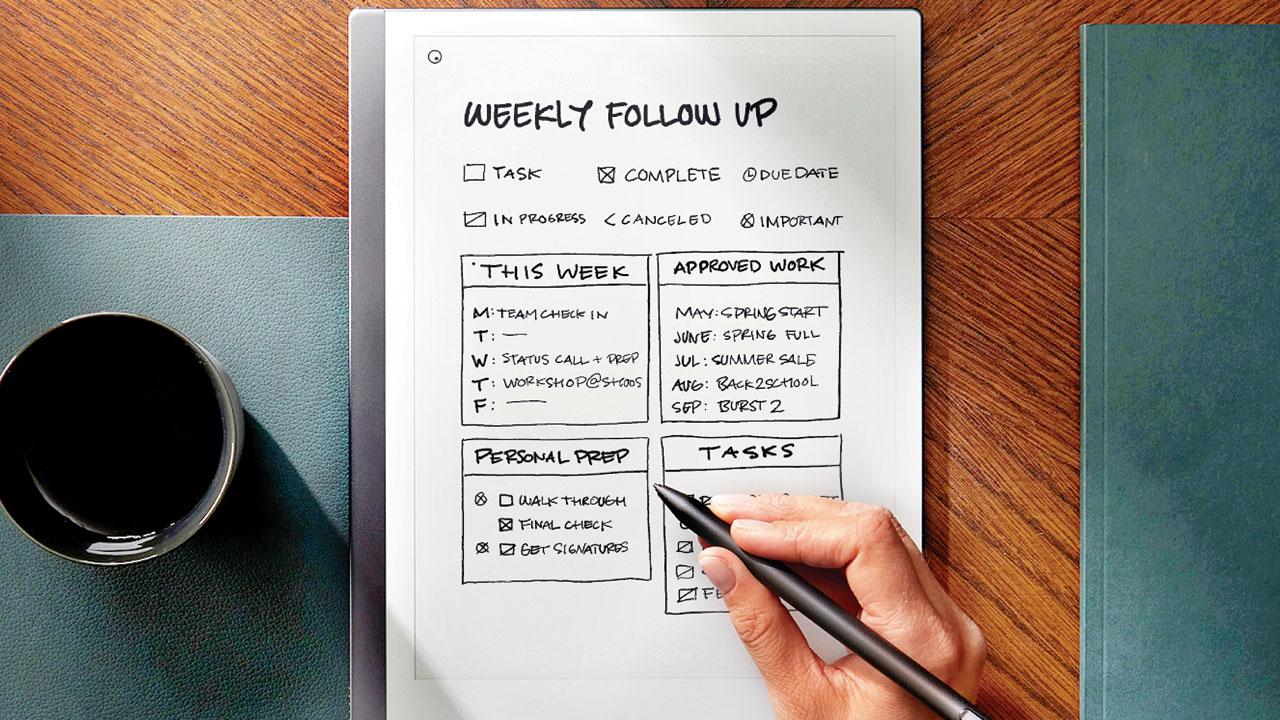 WEEKLY FOLLOW UP
TASK COMPLETE DUE DATE
IN PROGRESS < CANCELED IMPORTANT
THIS WEEK
M: TEAM CHECK IN
T: —
W: STATUS CALL + PREP
T: WORKSHOP@
F: —
APPROVED WORK
MAY: SPRING START
JUNE: SPRING FULL
JUL: SUMMER SALE
AUG: BACK2SCHOOL
SEP: BURST 2
PERSONAL PREP
WALK THROUGH
FINAL CHECK
GET SIGNATURES
TASKS